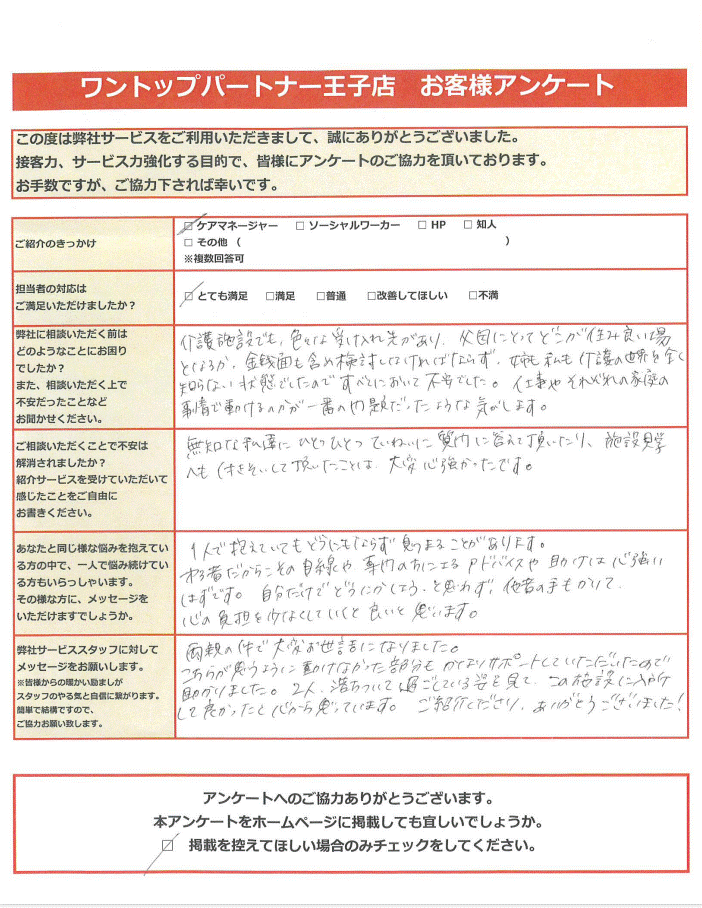 ワントップパートナー王子店 お客様アンケート
この度は弊社サービスをご利用いただきまして、誠にありがとうございました。
接客力、サービス力強化する目的で、皆様にアンケートのご協力を頂いております。
お手数ですが、ご協力下されば幸いです。
ご紹介のきっかけ
☑ ケアマネージャー □ ソーシャルワーカー □ HP □ 知人
□ その他 ( )
※複数回答可
担当者の対応は
ご満足いただけましたか?
☑ とても満足 □満足 □普通 □改善してほしい □不満
弊社に相談いただく前は
どのようなことにお困り
でしたか?
また、相談いただく上で
不安だったことなど
お聞かせください。
介護施設でも、色々な受け入れ先があり、父母にとってどこが住み良い場
となるか、金銭面も含め検討しなければならず、姉も私も介護の世界を全く
知らない状態でしたのですべてにおいて不安でした。仕事やそれぞれの家庭の
事情で動けるのかが一番の問題だったような気がします。
ご相談いただくことで不安は
解消されましたか?
紹介サービスを受けていただいて
感じたことをご自由に
お書きください。
無知な私達にひとつひとつていねいに質問に答えて頂いたり、施設見学
へも付きそいして頂いたことは、大変心強かったです。
あなたと同じ様な悩みを抱えてい
る方の中で、一人で悩み続けてい
る方もいらっしゃいます。
その様な方に、メッセージを
いただけますでしょうか。
1人で抱えていてもどうにもならず見つまることがあります。
他者だからこその目線や専門の方によるアドバイスや助けは心強い
はずです。自分だけでどうにかしようと思わず、他者の手もかりて、
心の負担を少なくしていくと良いと思います。
弊社サービススタッフに対して
メッセージをお願いします。
※皆様からの暖かい励ましが
スタッフのやる気と自信に繋がります。
簡単で結構ですので、
ご協力お願い致します。
両親の件で大変お世話になりました。
こちらが思うように動けなかった部分もかなりサポートしていただいたので
助かりました。2人、落ちついて過ごしている姿を見て、この施設に入所
して良かったと心から思っています。ご紹介くださり、ありがとうございました!
アンケートへのご協力ありがとうございます。
本アンケートをホームページに掲載しても宜しいでしょうか。
☑ 掲載を控えてほしい場合のみチェックをしてください。